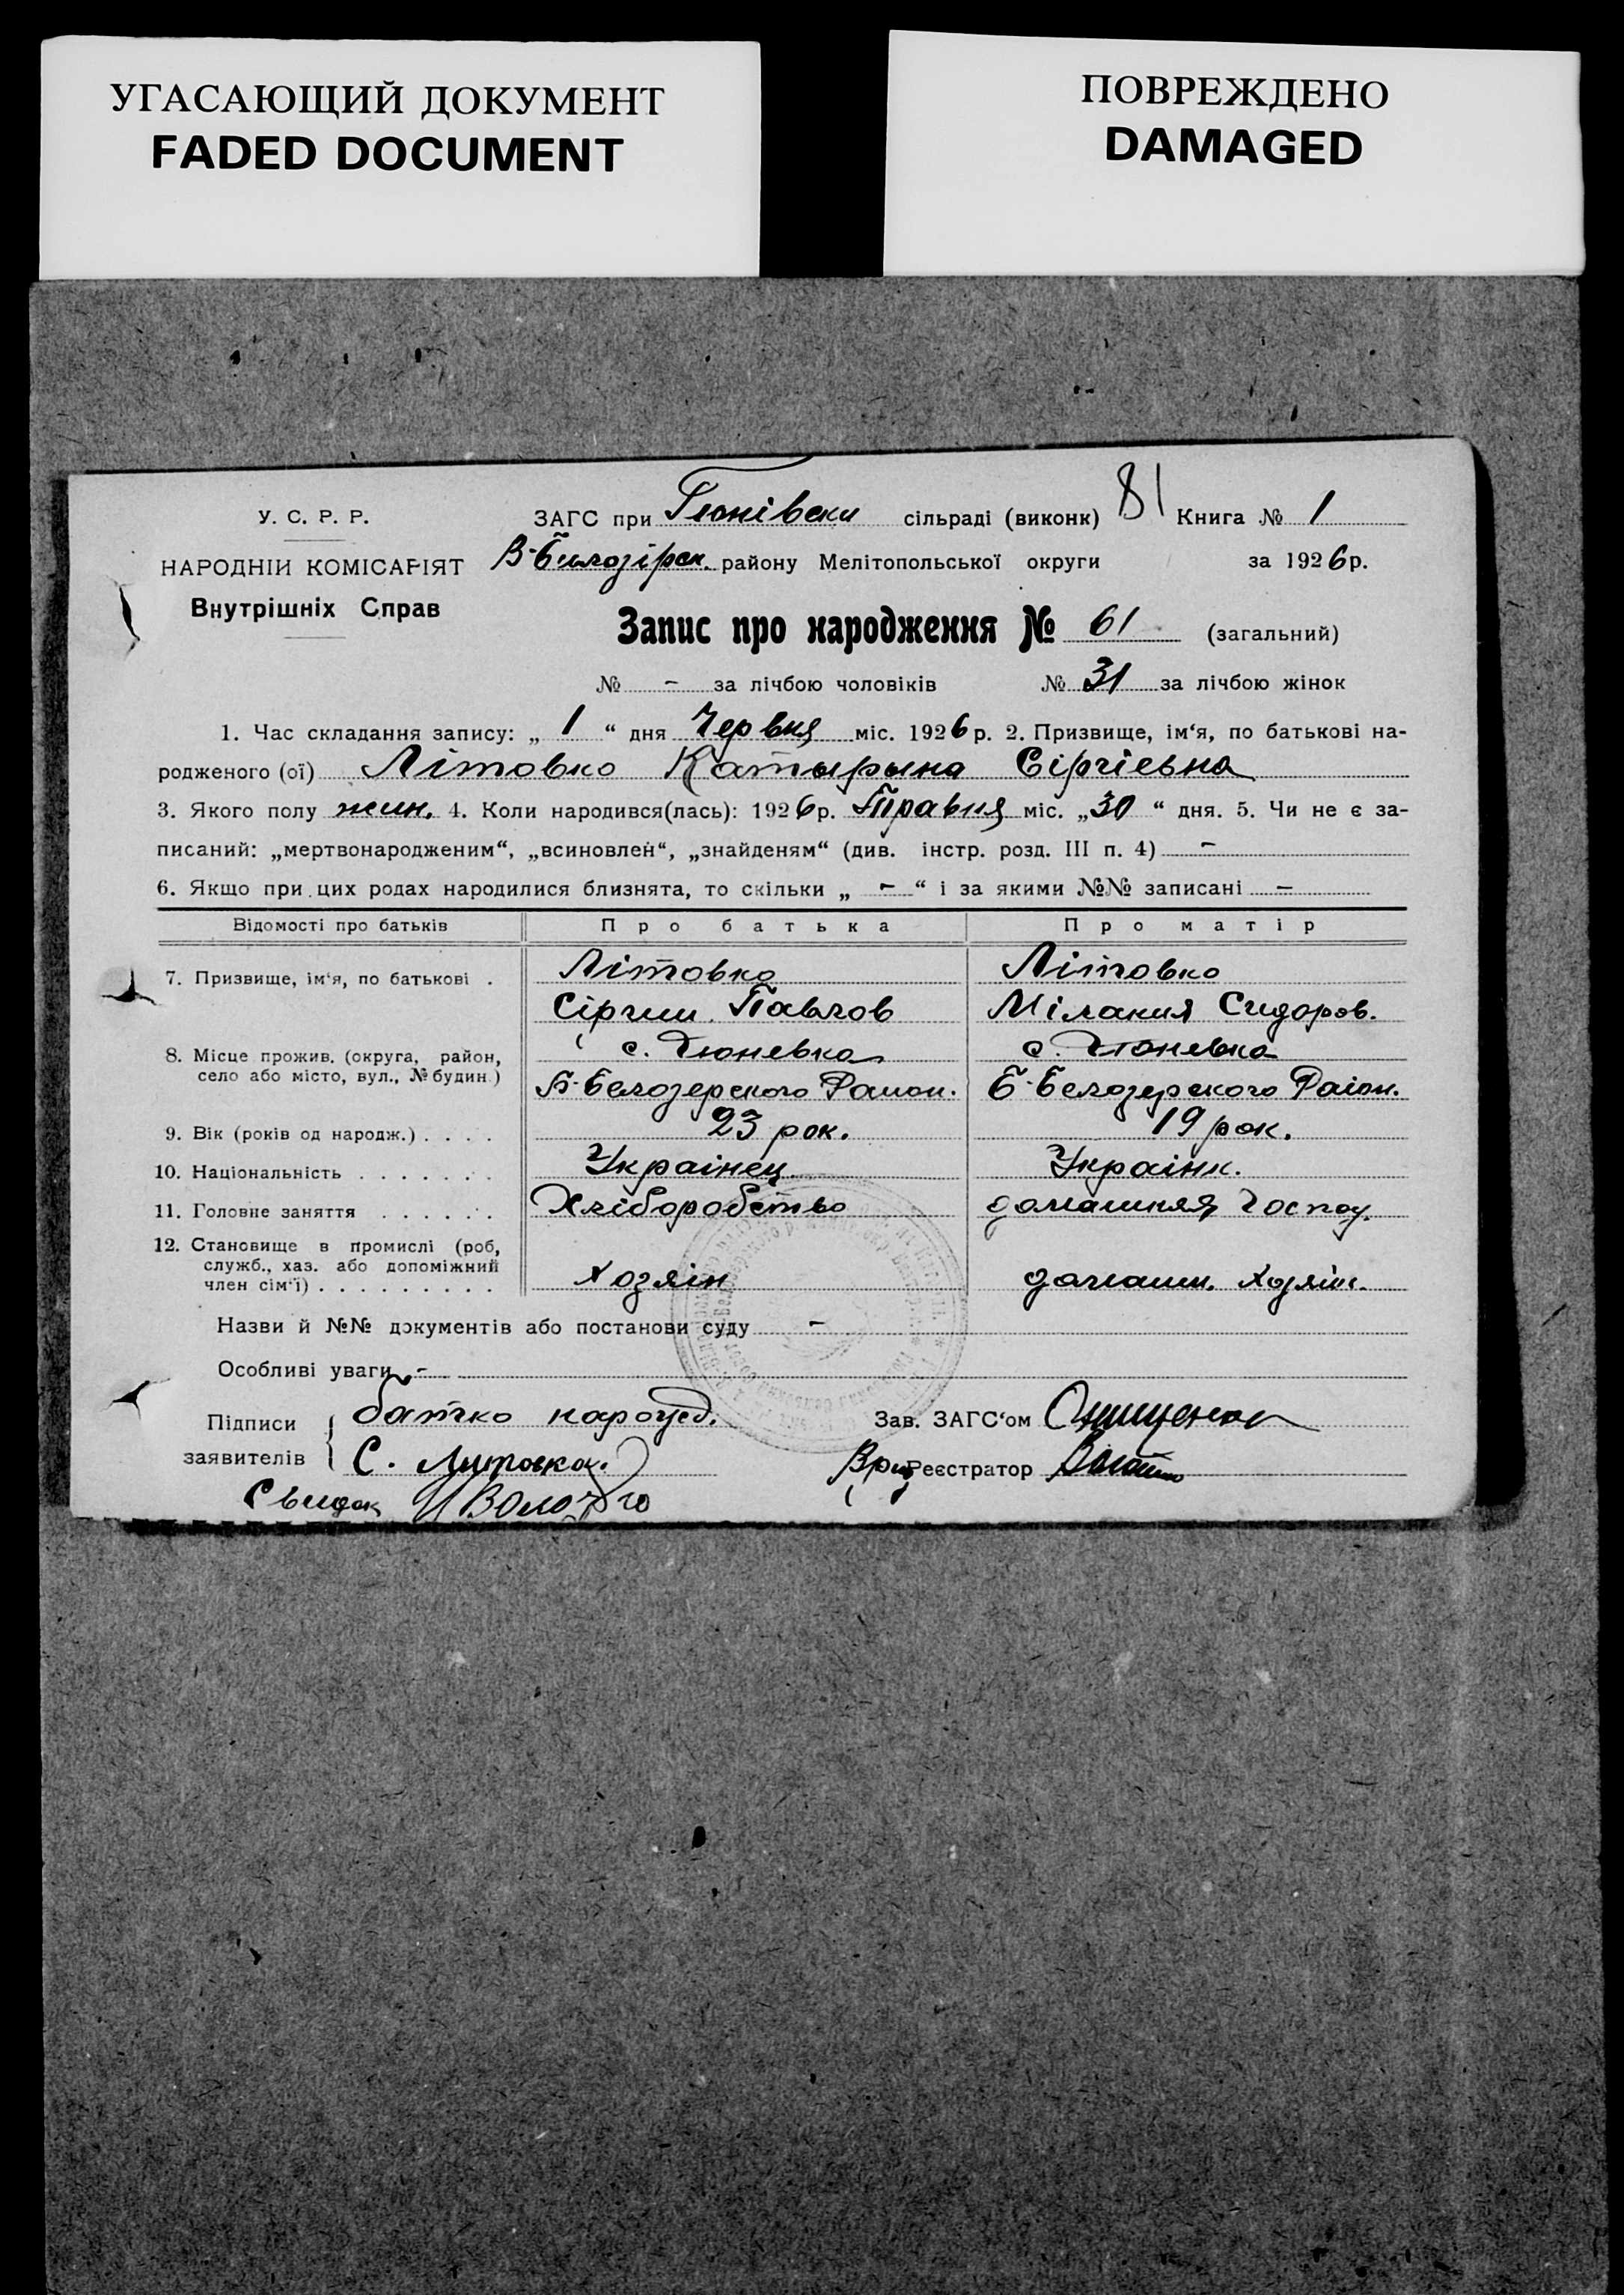 УГАСАЮЩИЙ ДОКУМЕНТ
FADED DOCUMENT
ПОВРЕЖДЕНО
DAMAGED
У. С. Р. Р.
НАРОДНІЙ КОМІСАРІЯТ
Внутрішніх Справ
ЗАГС при Гюнівски сільраді (виконк) 81 Книга № 1
В-Билозірск. району Мелітопольської округи за 1926 р.
Запис про народження № 61 (загальний)
№ - за лічбою чоловіків № 31 за лічбою жінок
1. Час складання запису: „ 1 “ дня Червня міс. 1926 р. 2. Призвище, ім‘я, по батькові на-
родженого (ої) Літовко Катырына Сіргіевна
3. Якого полу жин. 4. Коли народився(лась): 1926 р. Травня міс. „30 “ дня. 5. Чи не є за-
писаний: „мертвонародженим“, „всиновлен“, „знайденям“ (див. інстр. розд. III п. 4) -
6. Якщо при цих родах народилися близнята, то скільки „ - “ і за якими №№ записані -
Відомості про батьків Про батька Про матір
7. Призвище, ім‘я, по батькові . Літовко Літовко
Сіргии Павлов Мілания Сидоров.
8. Місце прожив. (округа, район, с. Гюневка с. Гюневка
село або місто, вул., № будин.) Б-Белозерского Раион. Б-Белозерского Раіон.
9. Вік (років од народж.) . . . . 23 рок. 19 рок.
10. Національність . . . . . . . Украінец Украінк.
11. Головне заняття . . . . . . Хліборобство домашняя Господ.
12. Становище в промислі (роб,
служб., хаз. або допоміжний
член сім‘ї) . . . . . . . . . Хозяін домашн. Хозяін.
Назви й №№ документів або постанови суду -
Особливі уваги -
Підписи
заявителів
батько народж.
С. Литовка.
Свидок
Зав. ЗАГС‘ом Онищенко
Реєстратор